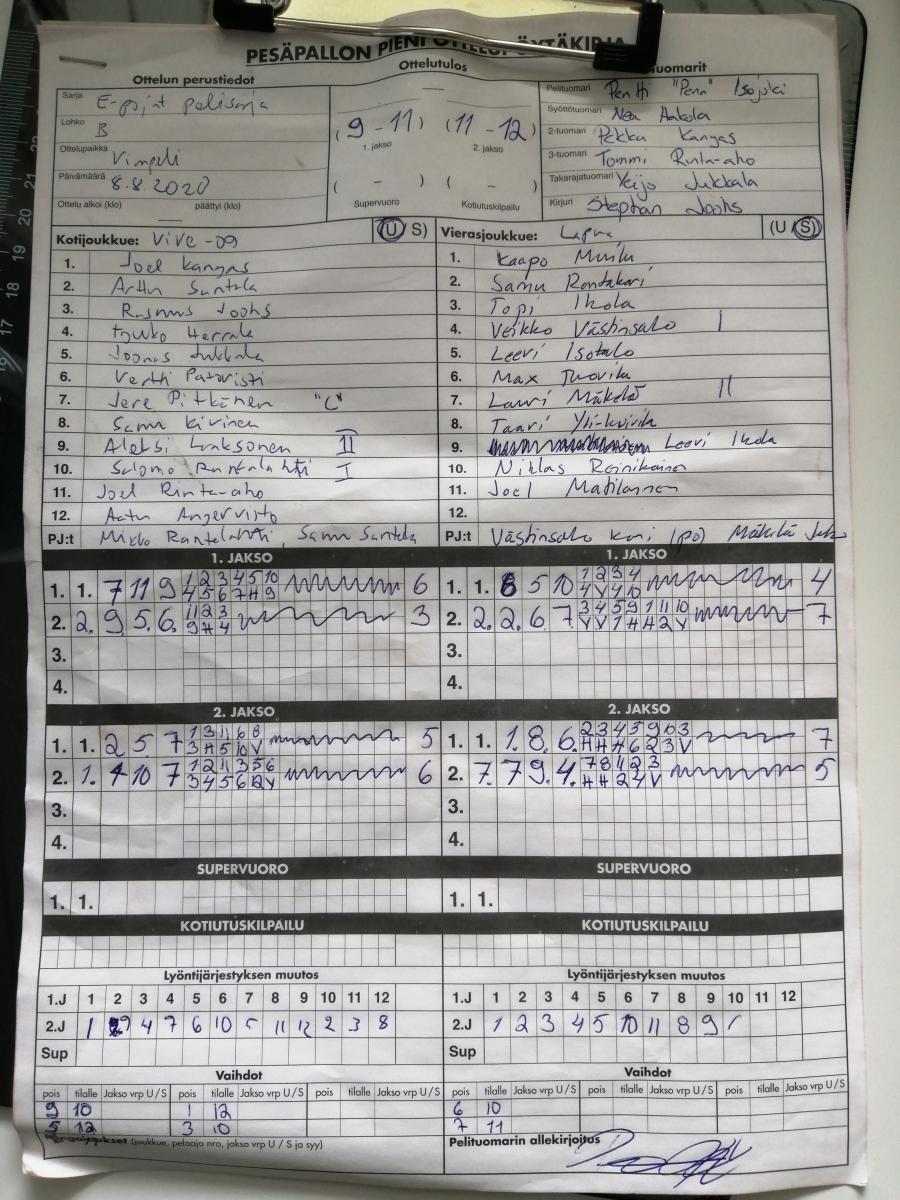 PESÄPALLON PIENI OTTELUPÖYTÄKIRJA
Ottelun perustiedot
Sarja E-pojat
Lohko B
Ottelupaikka Vimpeli
Päivämäärä 8.8.2020
Ottelu alkoi (klo) päättyi (klo)
Ottelutulos
(9 - 11) (11 - 12)
1. jakso 2. jakso
( - ) ( - )
Supervuoro Kotiutuskilpailu
tuomarit
Pelituomari Pentti "Pena" Isojoki
Syöttötuomari Nea Hakola
2-tuomari Pekka Kangas
3-tuomari Tommi Rinta-aho
Takarajatuomari Veijo Jukkala
Kirjuri Stephan
Kotijoukkue: ViVe -09 (U/S)
1. Joel Kangas
2. Arttu Santala
3. Rasmus
4. Touko Herrala
5. Joonas Jukkala
6. Vertti Patoristi
7. Jere Pitkänen "C"
8. Samu Kivinen
9. Aleksi Laaksonen II
10. Salomo Rantalahti I
11. Joel Rinta-aho
12. Aatu Angervisto
PJ:t Mikko Rantalahti, Samu Santala
Vierasjoukkue: Lapua (U/S)
1. Kaapo Muilu
2. Samu Rentakari
3. Topi Ikola
4. Veikko Västinsalo I
5. Leevi Isotalo
6. Max Tuovila
7. Lauri Mäkelä II
8. Taavi Yli-
9. Leevi Ikola
10. Niklas Reinikainen
11. Joel Matilainen
12.
PJ:t Västinsalo (PJ)
1. JAKSO
1. 1. 7 11 9 1 2 3 4 5 10 6
4 5 6 7 H 9
2. 2. 9. 5. 6. 11 2 3 3
9 H 4
3.
4.
1. JAKSO
1. 1. 8 5 10 1 2 3 4 4
4 V 4 10
2. 2. 2. 6 7 3 4 5 9 1 11 10 7
V V 1 H H 2 V
3.
4.
2. JAKSO
1. 1. 2 5 7 1 3 11 6 8 5
3 H 5 10 V
2. 1. 4 10 7 1 2 11 3 5 6 6
3 4 5 6 12 V
3.
4.
2. JAKSO
1. 1. 1. 8. 6. 2 3 4 5 9 10 3 7
H H H 6 2 3 V
2. 7. 7 9. 4. 7 8 1 2 3 5
H H 2 4 V
3.
4.
SUPERVUORO
1. 1.
SUPERVUORO
1. 1.
KOTIUTUSKILPAILU
KOTIUTUSKILPAILU
Lyöntijärjestyksen muutos
1.J 1 2 3 4 5 6 7 8 9 10 11 12
2.J 1 9 4 7 6 10 5 11 12 2 3 8
Sup
Lyöntijärjestyksen muutos
1.J 1 2 3 4 5 6 7 8 9 10 11 12
2.J 1 2 3 4 5 10 11 8 9
Sup
Vaihdot
pois tilalle Jakso vrp U / S pois tilalle Jakso vrp U / S pois tilalle Jakso vrp U / S
9 10 1 12
5 12 3 10
(joukkue, pelaaja nro, jakso vrp U / S ja syy)
Vaihdot
pois tilalle Jakso vrp U / S pois tilalle Jakso vrp U / S pois tilalle Jakso vrp U / S
6 10
7 11
Pelituomarin allekirjoitus